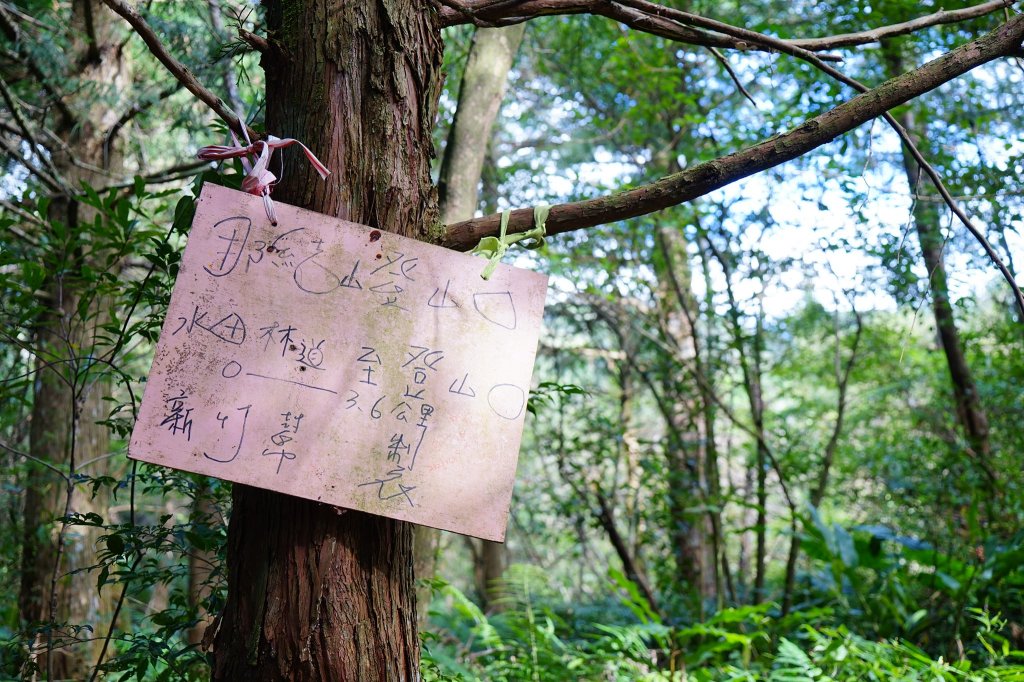 那結山登山口
水田林道至登山口
0——3.6公里
新竹 製